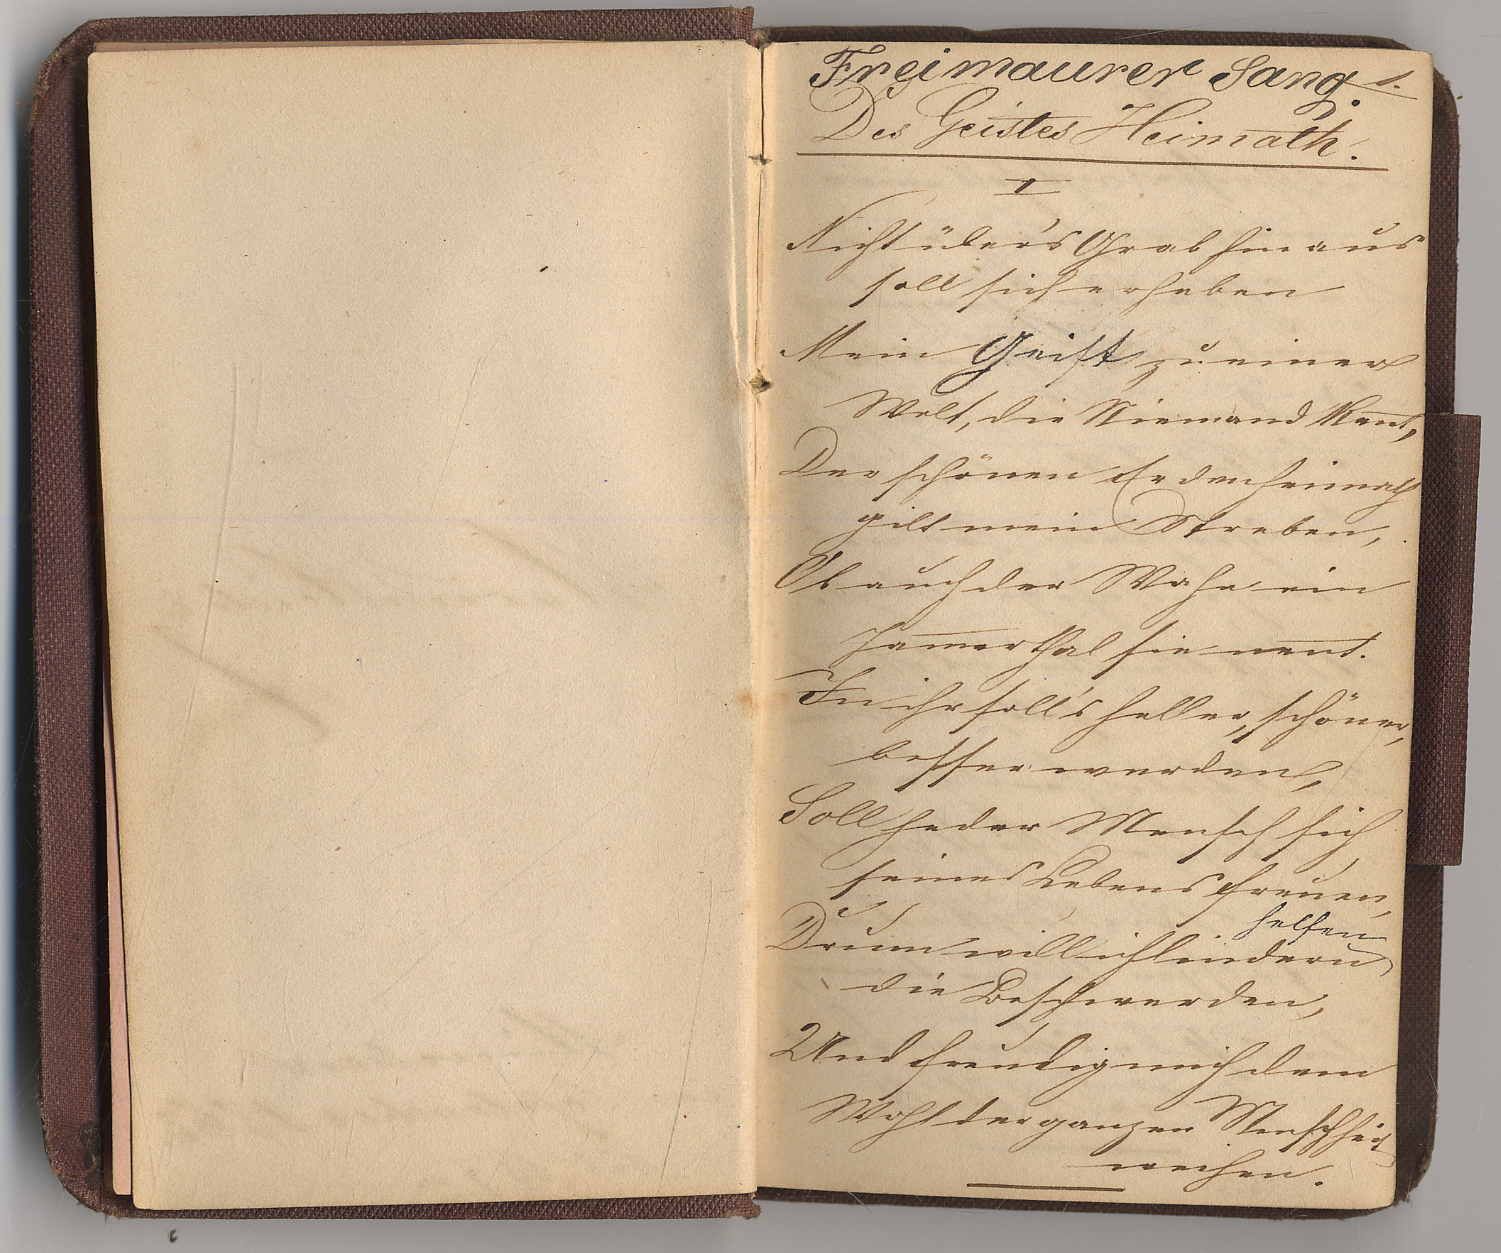 Freimaurer Sang. 1.
Des Geistes Heimath.
I
Nicht über's Grab hinaus
soll sich erheben
Mein Geist zu einer
Welt, die Niemand kent,
Der schönen Erdenheimath
gilt mein Streben,
Ob auch der Wahn ein
Jamerthal sie nent.
In ihr soll's heller, schöner,
besser werden,
Soll jeder Mensch sich
seines Lebens freuen,
helfen
Drum will ich lindern
die Beschwerden,
Und freudig mich dem
Wohl der ganzen Menschheit
weihen.